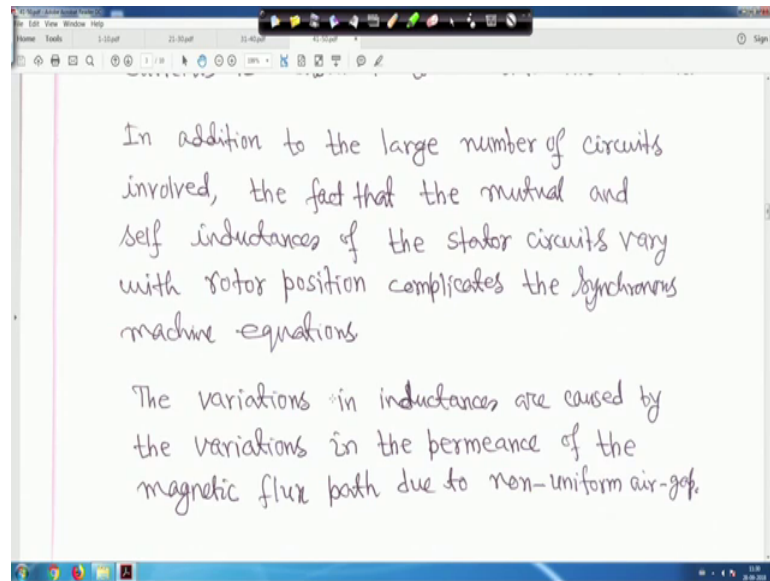 File Edit View Window Help
Home Tools 1-10.pdf 21-30.pdf 31-40.pdf 41-50.pdf Sign
In addition to the large number of circuits
involved, the fact that the mutual and
self inductances of the stator circuits vary
with rotor position complicates the synchronous
machine equations.
The variations in inductances are caused by
the variations in the permeance of the
magnetic flux path due to non-uniform air-gap.